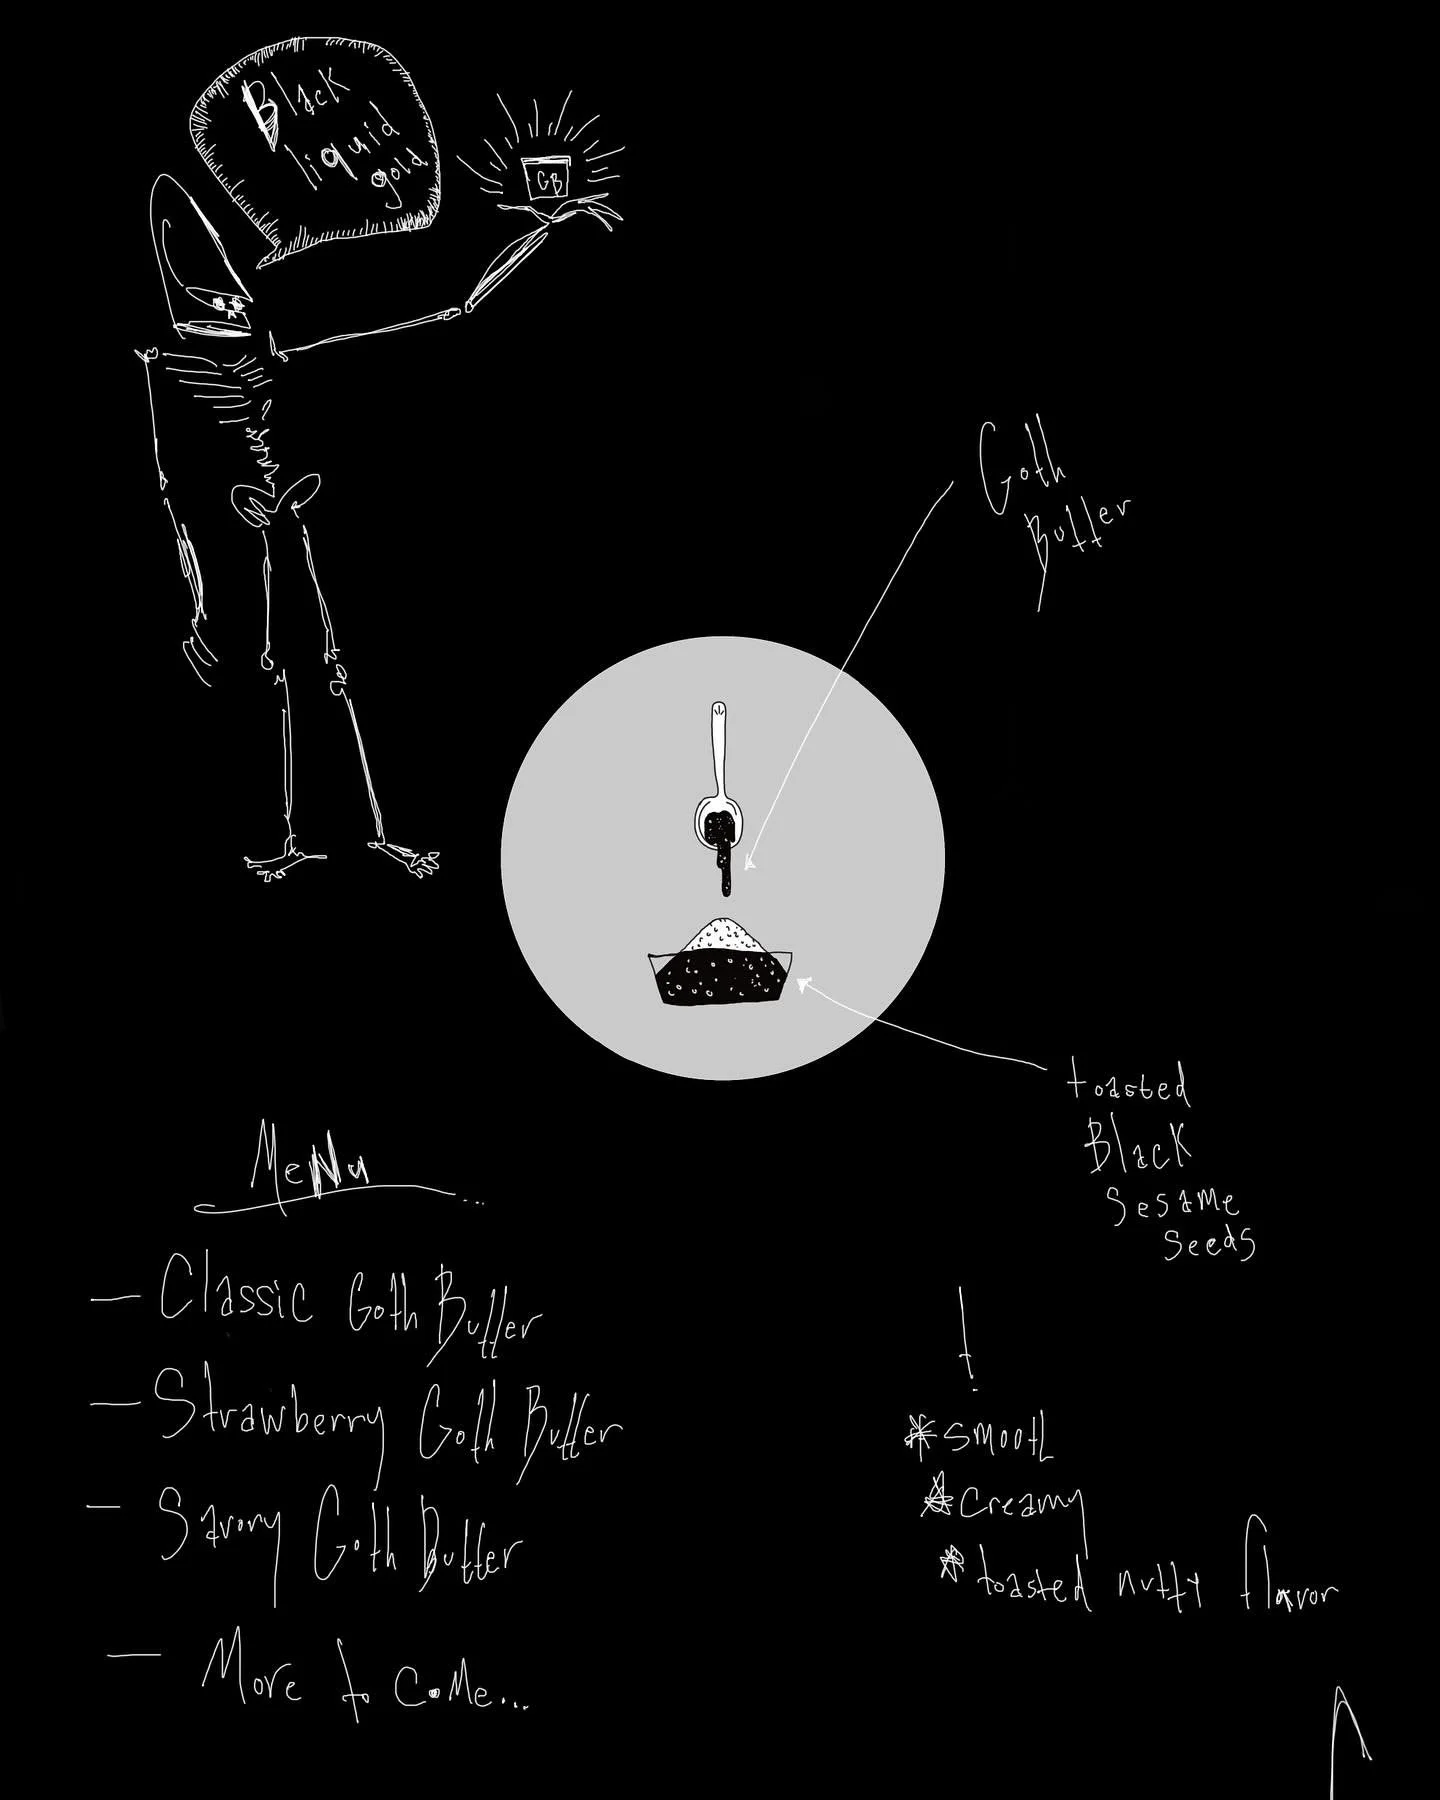 Black
liquid
gold
GB
Goth
Butter
toasted
Black
Sesame
Seeds
Menu
— Classic Goth Butter
— Strawberry Goth Butter
— Savory Goth Butter
— More to come...
* smooth
* creamy
* toasted nutty flavor